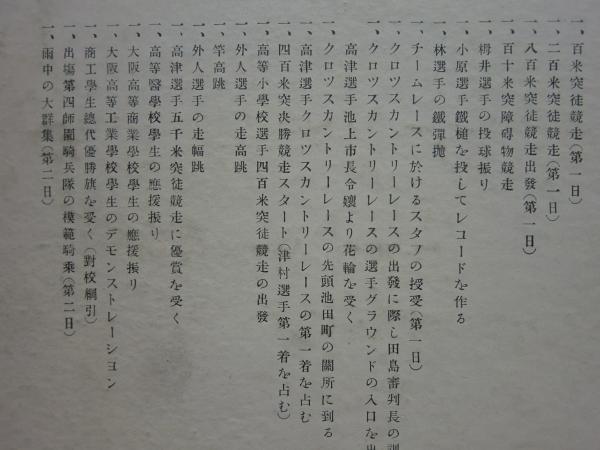 一、百米突徒競走(第一日)
一、二百米突徒競走(第一日)
一、八百米突徒競走出發(第一日)
一、百十米突障碍物競走
一、栂井選手の投球振り
一、小原選手鐵槌を投してレコードを作る
一、林選手の鐵彈抛
一、チームレースに於けるスタフの授受(第一日)
一、クロツスカントリーレースの出發に際し田島審判長の訓
一、クロツスカントリーレースの選手グラウンドの入口を出
高津選手池上市長令孃より花輪を受く
一、クロツスカントリーレースの先頭池田町の關所に到る
一、高津選手クロツスカントリーレースの第一着を占む
一、四百米突決勝競走スタート(津村選手第一着を占む)
一、高等小學校選手四百米突徒競走の出發
一、外人選手の走高跳
一、竿高跳
一、外人選手の走幅跳
一、高津選手五千米突徒競走に優賞を受く
一、高等醫學校學生の應援振り
一、大阪高等商業學校學生の應援振り
一、大阪高等工業學校學生のデモンストレーシヨン
一、商工學生總代優勝旗を受く(對校綱引)
一、出塲第四師團騎兵隊の模範騎乘(第二日)
一、雨中の大群集(第二日)